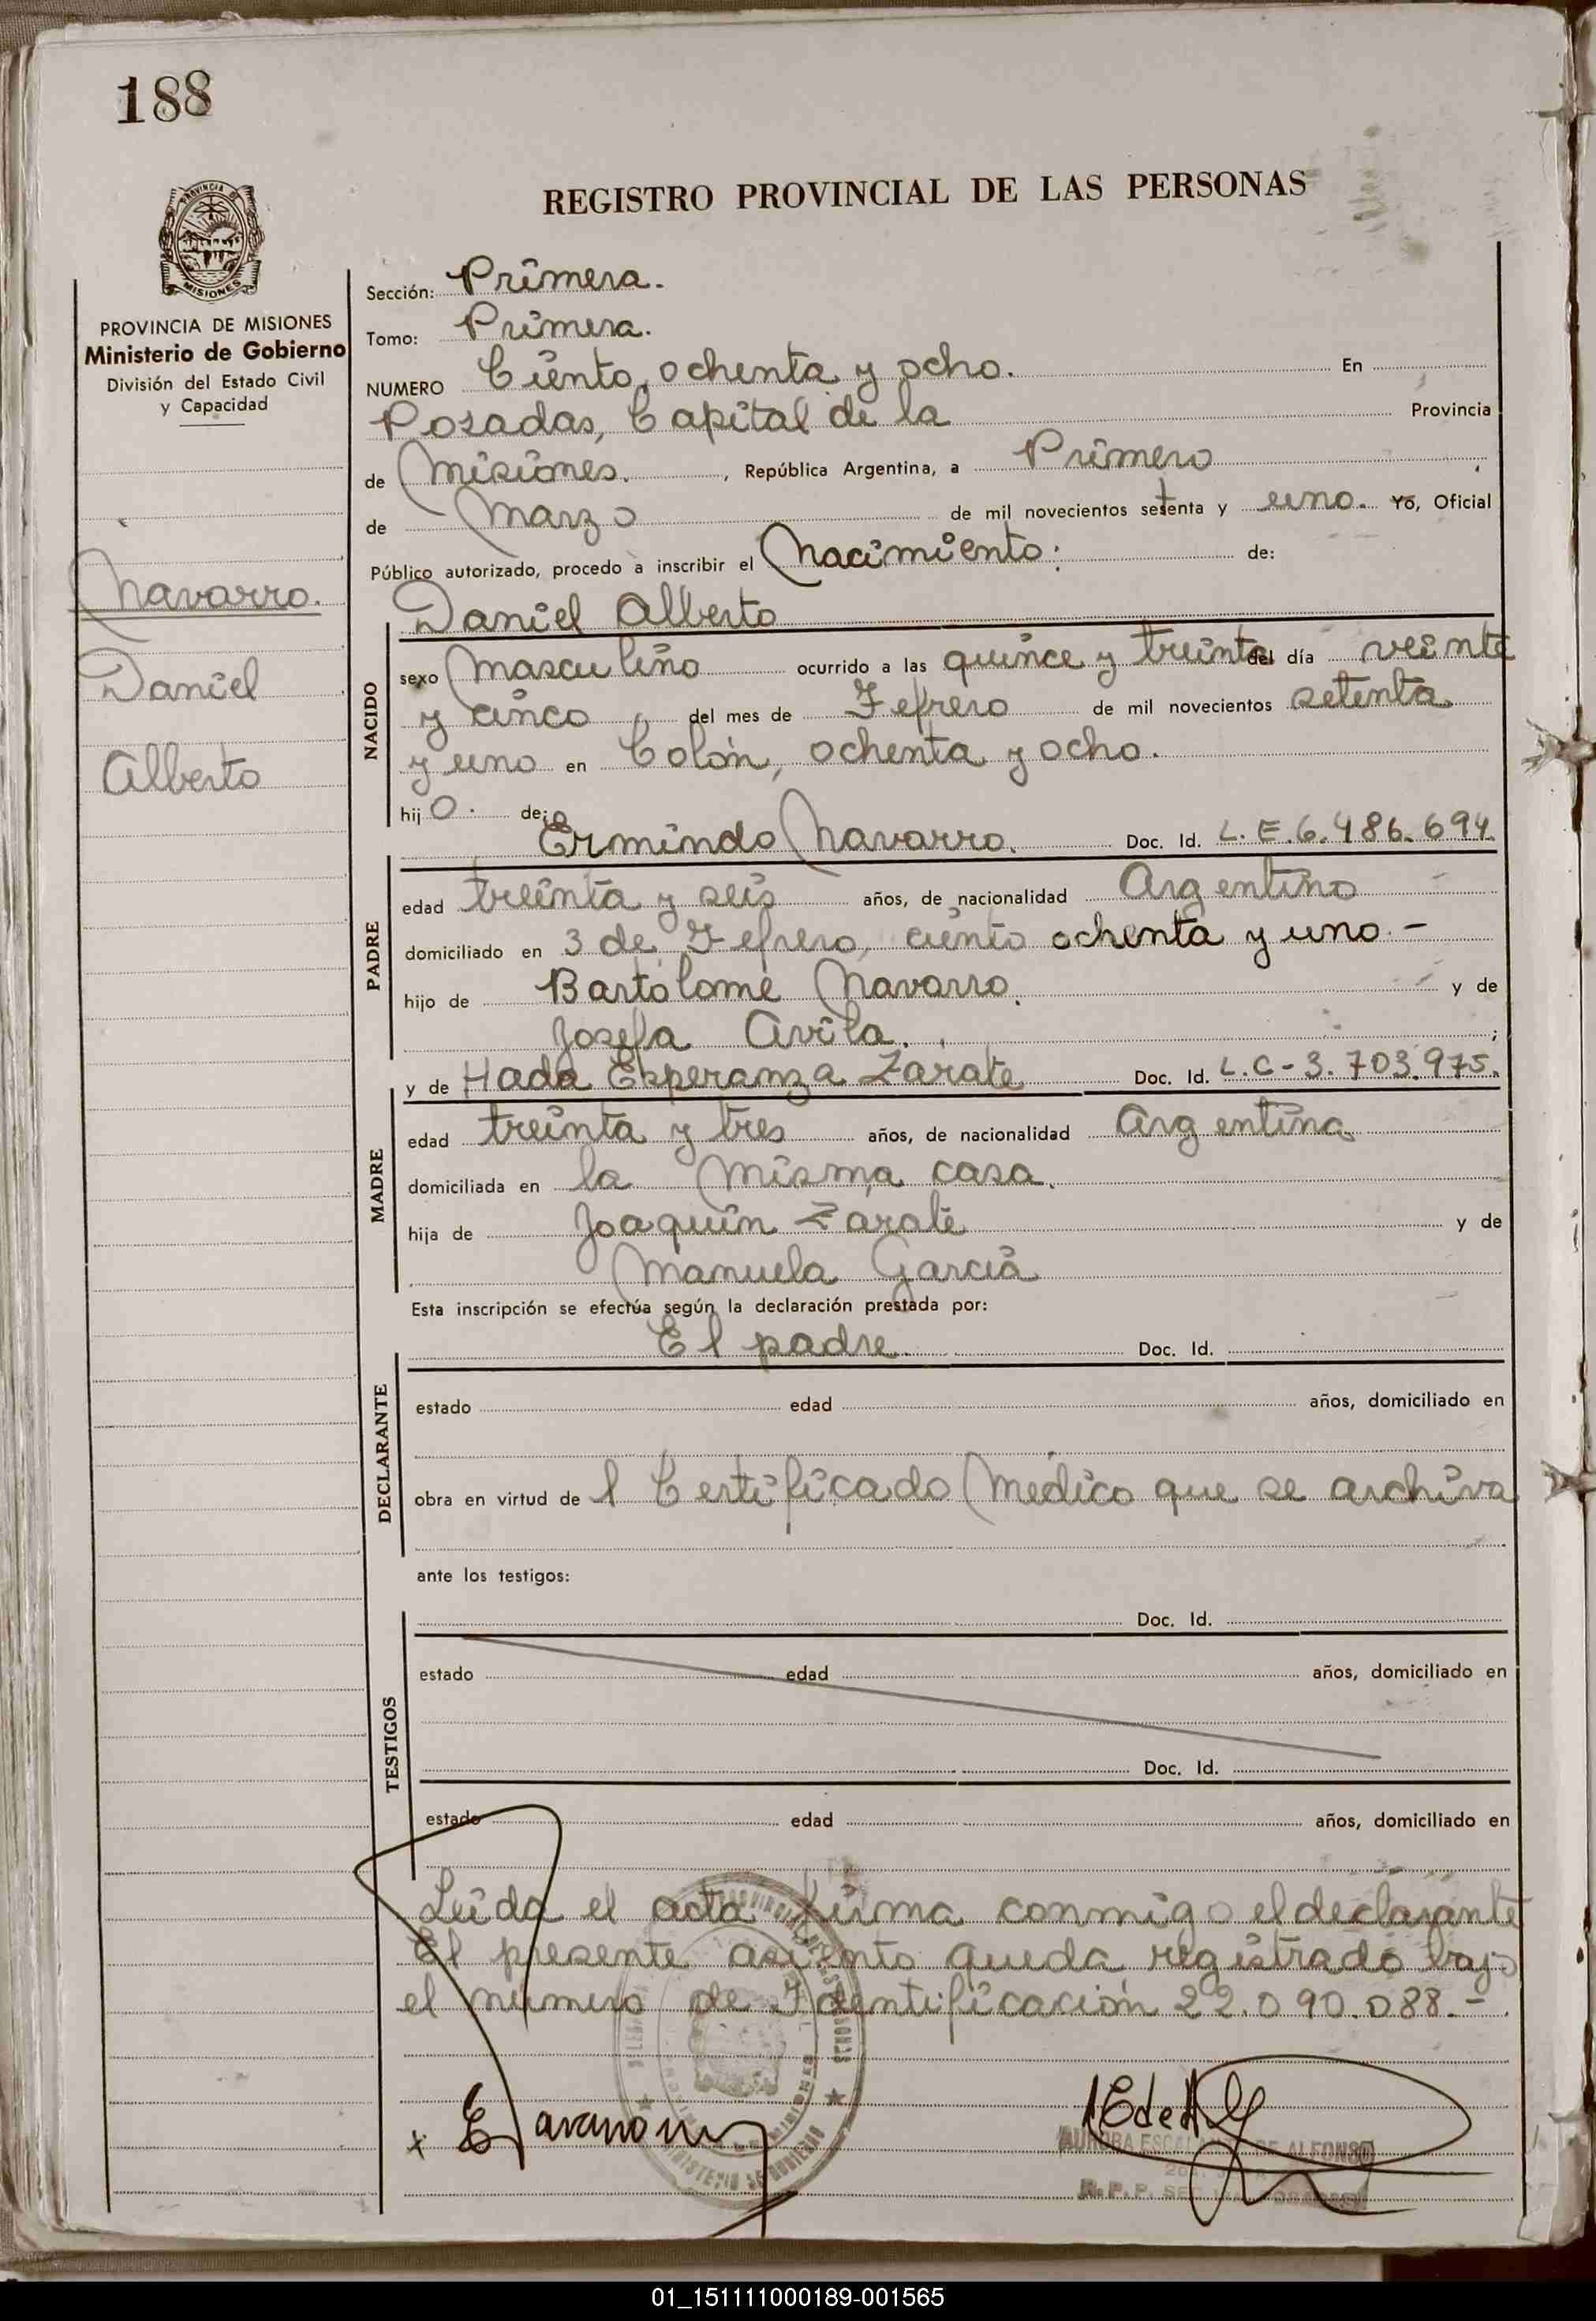 188
PROVINCIA DE
MISIONES
REGISTRO PROVINCIAL DE LAS PERSONAS
PROVINCIA DE MISIONES
Ministerio de Gobierno
División del Estado Civil
y Capacidad
Navarro.
Daniel
Alberto
Sección: Primera.
Tomo: Primera.
NUMERO Ciento, ochenta y ocho. En
Posadas, Capital de la Provincia
de Misiones. , República Argentina, a Primero
de Marzo de mil novecientos setenta y uno. Yo, Oficial
Público autorizado, procedo a inscribir el Nacimiento: de:
Daniel Alberto
NACIDO
sexo Masculino ocurrido a las quince y treinta del día veinte
y cinco del mes de Febrero de mil novecientos setenta
y uno en Colón, ochenta y ocho.
hijo. de:
Ermindo Navarro. Doc. Id. L.E.6.486.694
PADRE
edad treinta y seis años, de nacionalidad Argentino
domiciliado en 3 de Febrero, ciento ochenta y uno.-
hijo de Bartolomé Navarro. y de
Josefa Avila. ;
y de Hada Esperanza Zarate Doc. Id. L.C-3.703.975.
MADRE
edad treinta y tres años, de nacionalidad Argentina
domiciliada en la misma casa.
hija de Joaquín Zarate y de
Manuela García
Esta inscripción se efectúa según la declaración prestada por:
El padre Doc. Id.
DECLARANTE
estado edad años, domiciliado en
obra en virtud de l Certificado Médico que se archiva
ante los testigos:
Doc. Id.
TESTIGOS
estado edad años, domiciliado en
Doc. Id.
estado edad años, domiciliado en
Leida el acta firma conmigo el declarante
El presente asiento queda registrado bajo
el numero de Identificación 22.090.088.-
MINISTERIO DE GOBIERNO
x
DE ALFONSO
R.P.P.
01_151111000189-001565